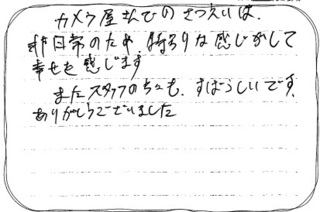 カメラ屋さんでのさつえいは、
非日常のため、特別な感じがして
幸せを感じます
またスタッフの方も、すばらしいです、
ありがとうございました